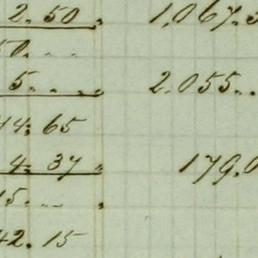 2.50. 1,067.5
50...
5.... 2.055..
44.65
4.37. 179.0
15....
42.15